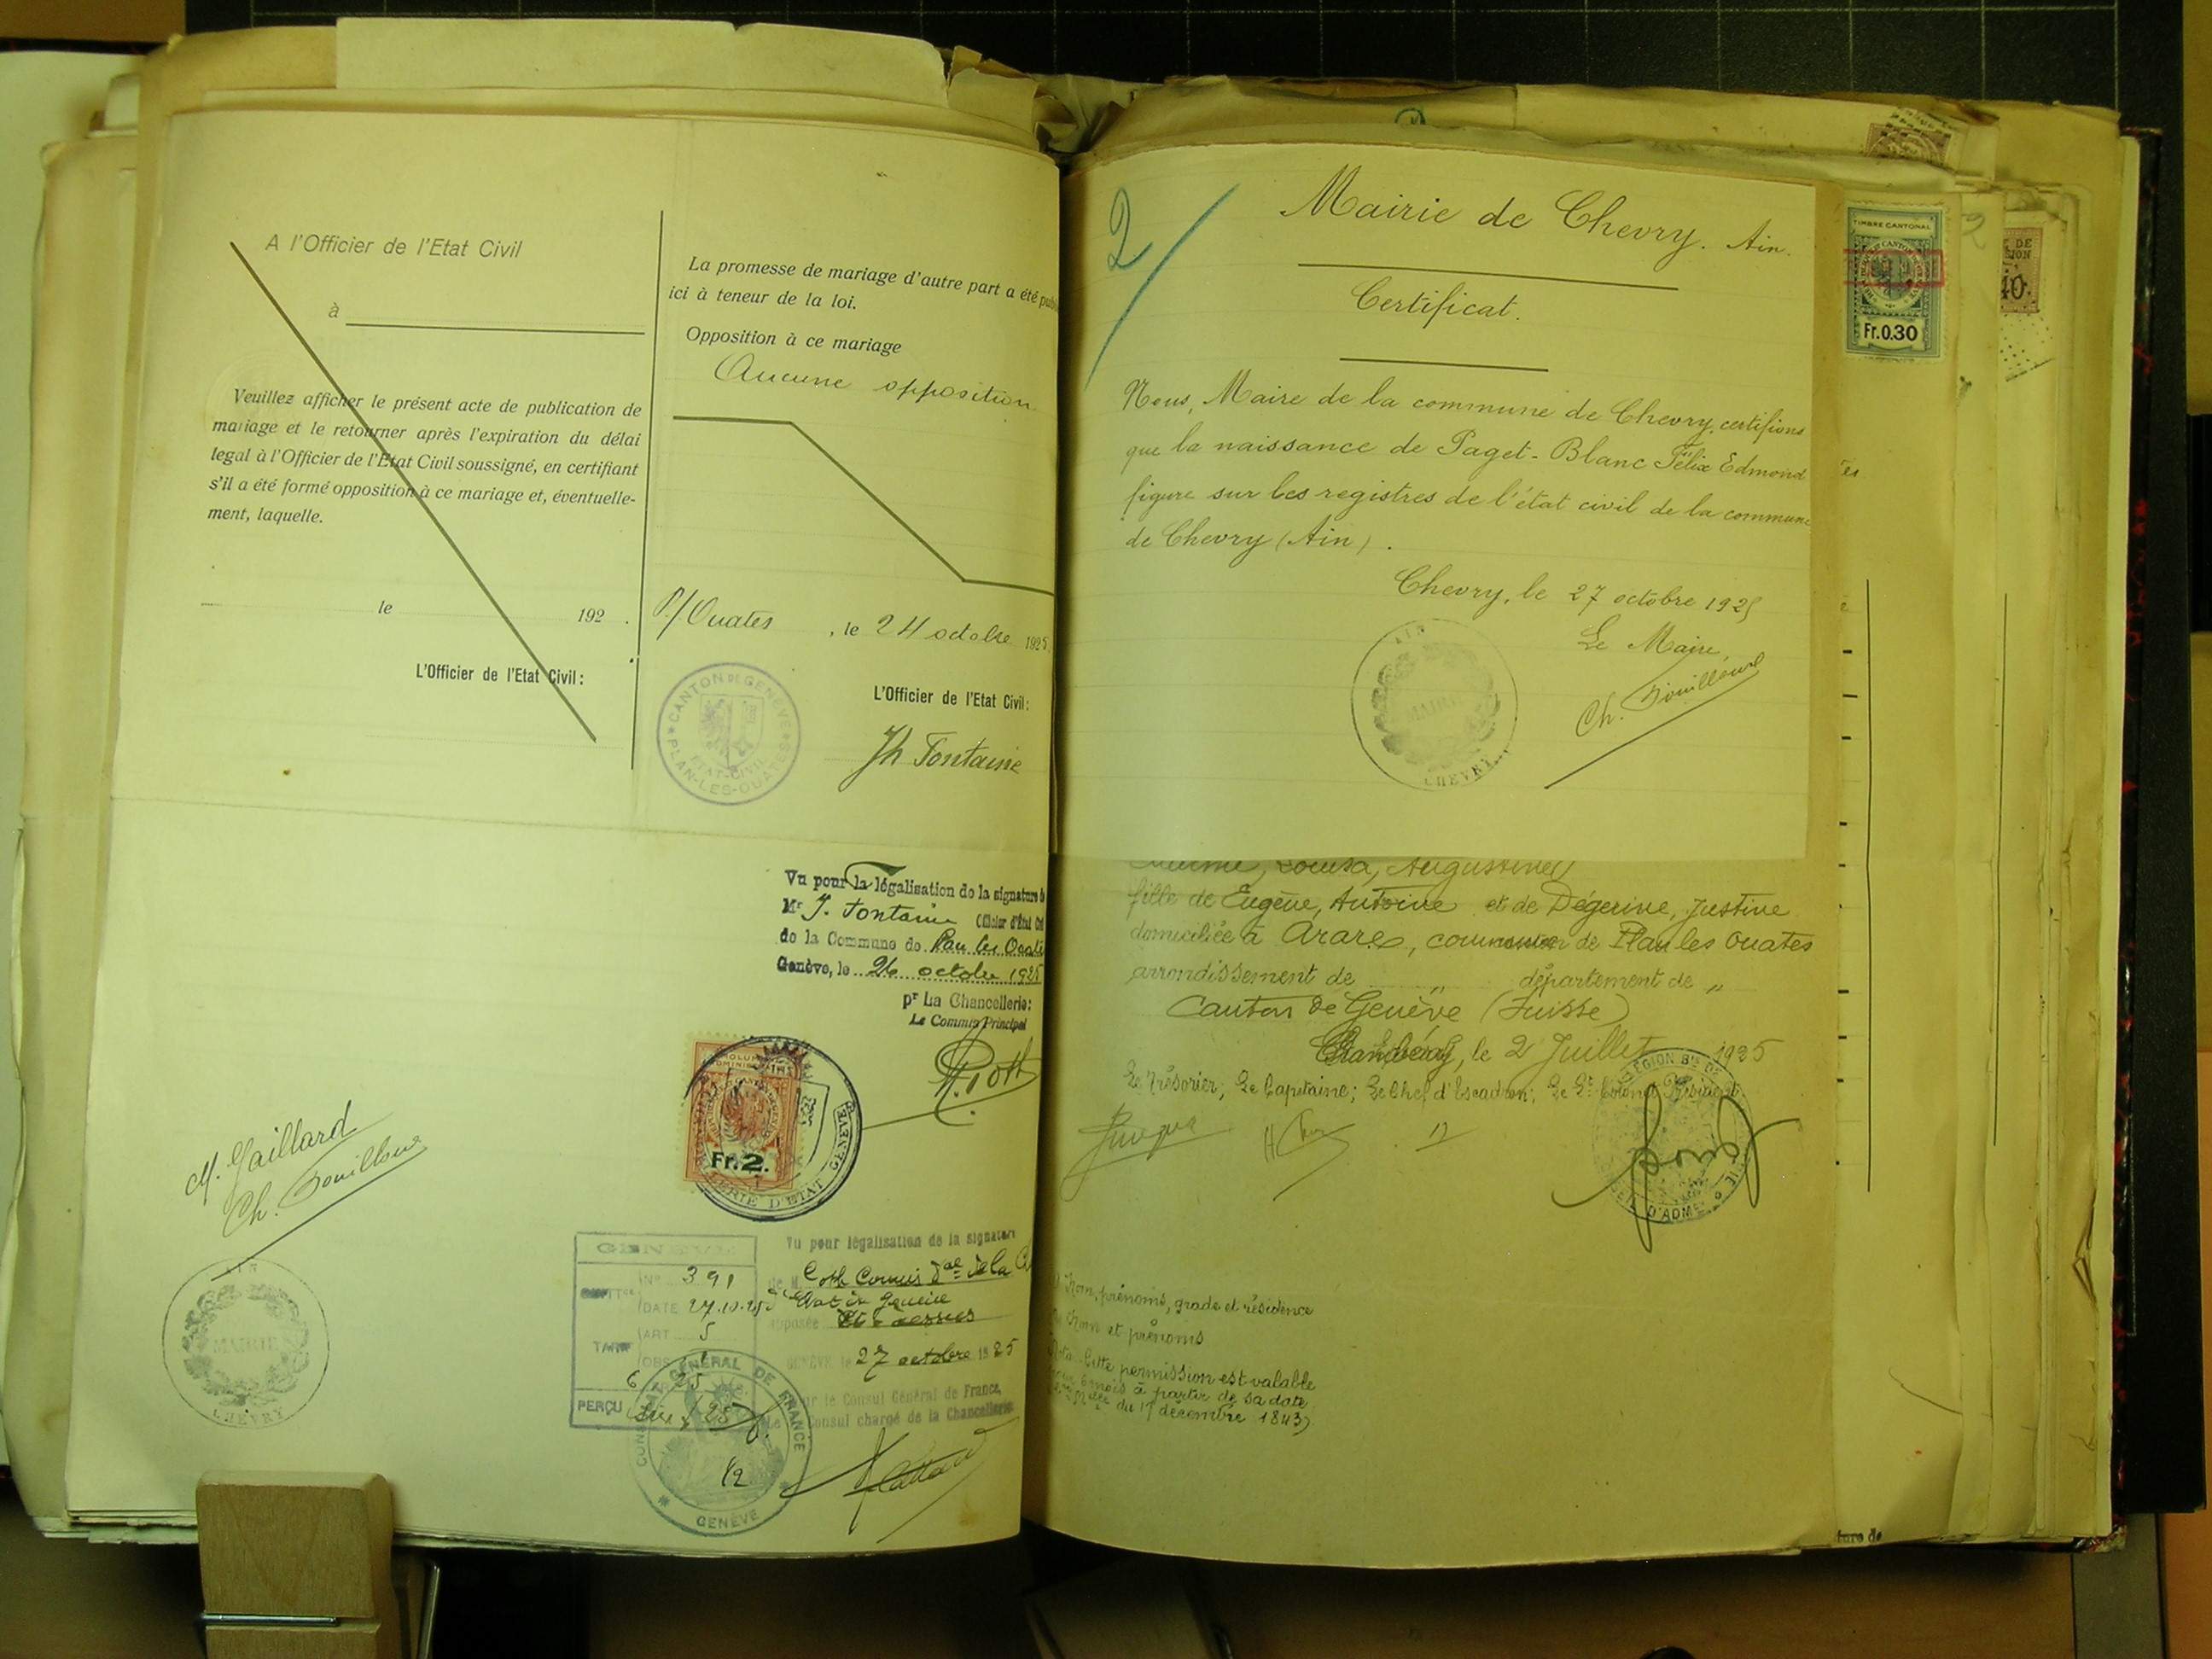 A l'Officier de l'Etat Civil
à
Veuillez afficher le présent acte de publication de
mariage et le retourner après l'expiration du délai
legal à l'Officier de l'Etat Civil soussigné, en certifiant
s'il a été formé opposition à ce mariage et, éventuelle-
ment, laquelle.
le 192 .
L'Officier de l'Etat Civil :
La promesse de mariage d'autre part a été
ici à teneur de la loi.
Opposition à ce mariage
Aucune opposition
P./Ouates , le 24 octobre 1925
CANTON DE GENÈVE
ETAT-CIVIL
PLAN-LES-OUATES
L'Officier de l'Etat Civil :
Jh Fontaine
Vu pour la légalisation de la signature
Mr J. Fontaine Officier d'Etat
de la Commune de Plan les Ouates
Genève, le 26 octobre 1925
pr La Chancellerie:
Le Commis Principal
Fr. 2.
D'ETAT
GENEVE
M. Gaillard
AIN
MAIRIE
CHEVRY
GENEVE
No 391
DATE 27.10.25
ART 5
TARIF
OBS
PERÇU
Vu pour légalisation de la signature
de M.
apposée ci-dessus
GENÈVE le 27 octobre 1925
le Consul Général de France,
Le Consul chargé de la Chancellerie
CONSULAT GÉNÉRAL DE FRANCE
GENÈVE
12
2
Mairie de Chevry. Ain.
Certificat.
Nous, Maire de la commune de Chevry, certifions
que la naissance de Paget-Blanc Félix Edmond
figure sur les registres de l'état civil de la commune
de Chevry (Ain).
Chevry, le 27 octobre 1925
Le Maire,
AIN
MAIRIE
CHEVRY
Louisa, Augustine
fille de Eugène, Antoine et de Dégerine, Justine
domiciliée à Arare, commune de Plan les Ouates
arrondissement de " département de "
Canton de Genève (Suisse)
le 2 Juillet 1925
Le Trésorier; Le Capitaine; Le Chef d'Escadron; Le Lt Colonel Président
LÉGION
D'ADM
Nom, prénoms, grade et résidence
Nom et prénoms
Nota Cette permission est valable
pour 6 mois à partir de sa date
du 17 décembre 1843)
TIMBRE CANTONAL
Fr. 0.30
DE
40.